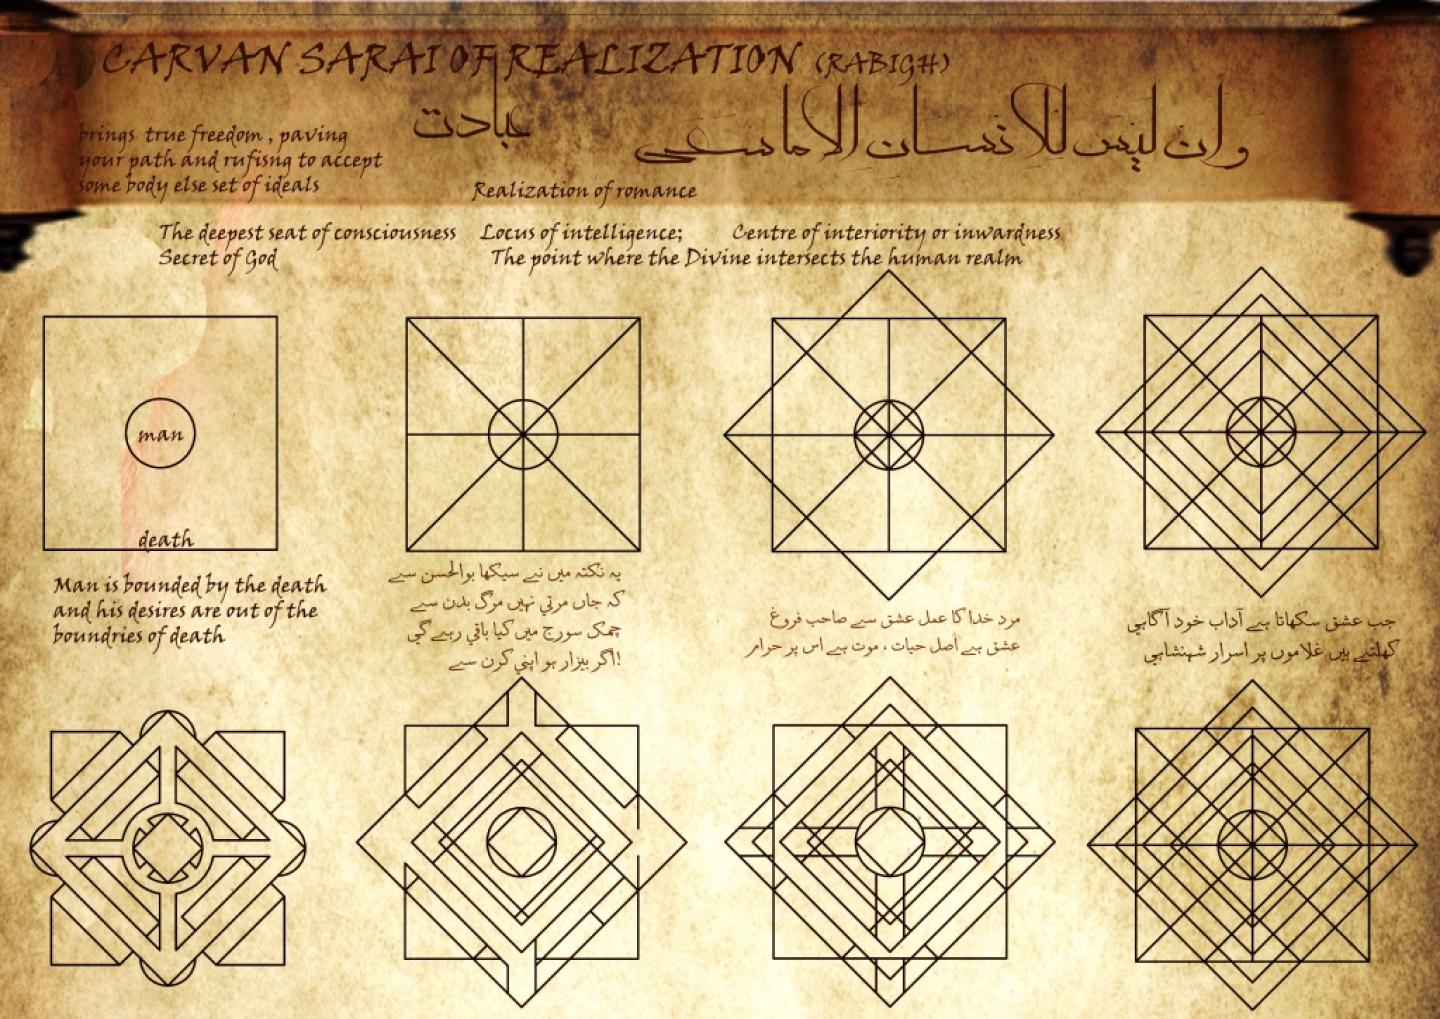 CARVAN SARAI OF REALIZATION (RABIGH)
عبادت
و ان ليس للانسان الا ما سعى
brings true freedom , paving
your path and rufisng to accept
some body else set of ideals
Realization of romance
The deepest seat of consciousness
Secret of God
Locus of intelligence;
Centre of interiority or inwardness
The point where the Divine intersects the human realm
man
death
Man is bounded by the death
and his desires are out of the
boundries of death
یہ نکتہ میں نے سیکھا بوالحسن سے
کہ جاں مرتی نہیں مرگ بدن سے
چمک سورج میں کیا باقی رہے گی
اگر بیزار ہو اپنی کرن سے!
مرد خدا کا عمل عشق سے صاحب فروغ
عشق ہے اصل حیات ، موت ہے اس پر حرام
جب عشق سکھاتا ہے آداب خود آگاہی
کھلتے ہیں غلاموں پر اسرار شہنشاہی